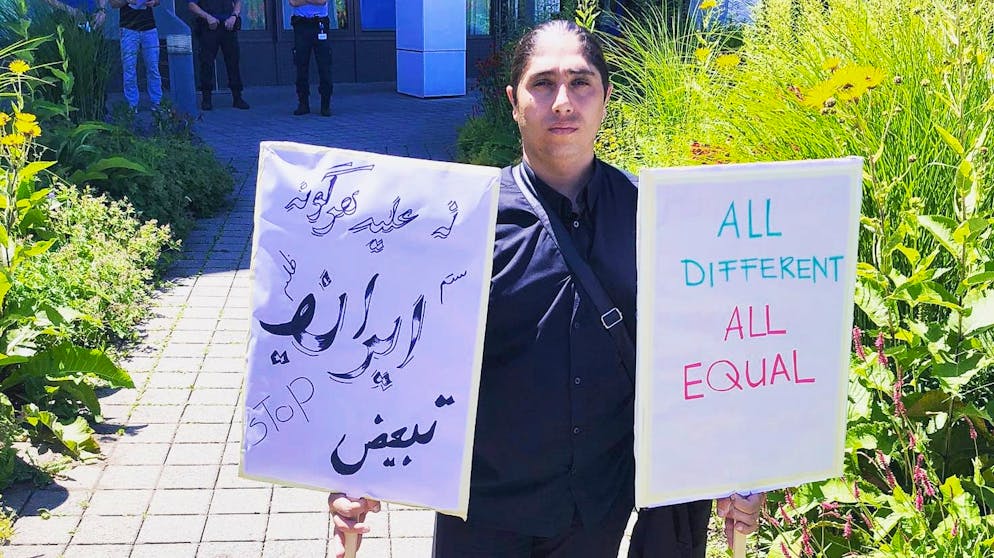 نه علیه هرگونه
ستم ایرانی ظلم
STOP
تبعیض
ALL
DIFFERENT
ALL
EQUAL